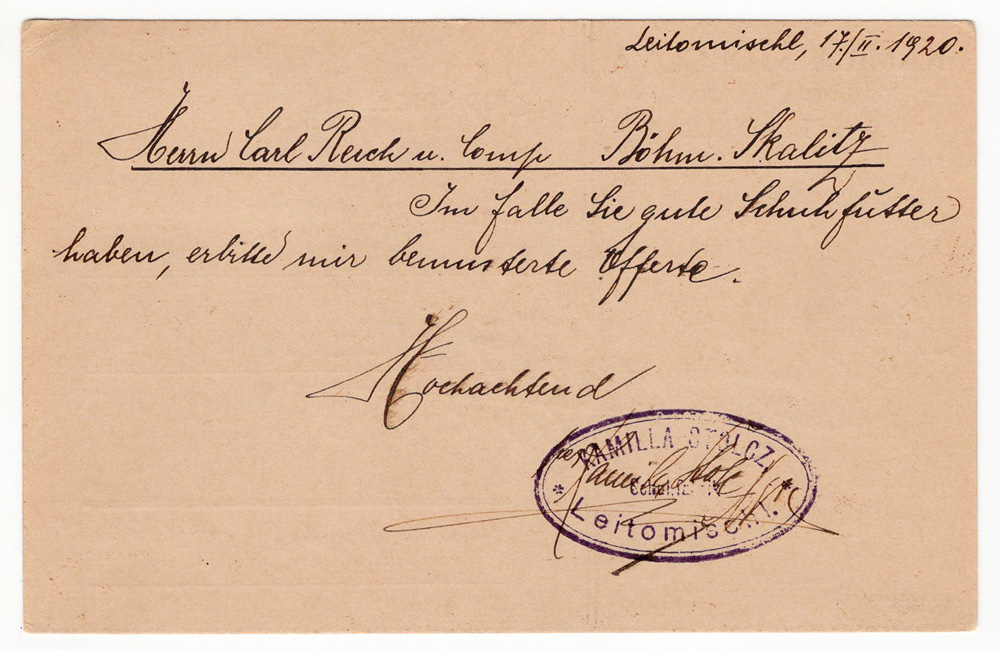 Leitomischl, 17./II. 1920.
Herrn Carl Reich u. Comp Böhm. Skalitz
Im falle Sie gute Schuhfutter
haben, erbitte mir bemusterte Offerte.
Hochachtend
KAMILLA STOLCZ
Leitomischl.